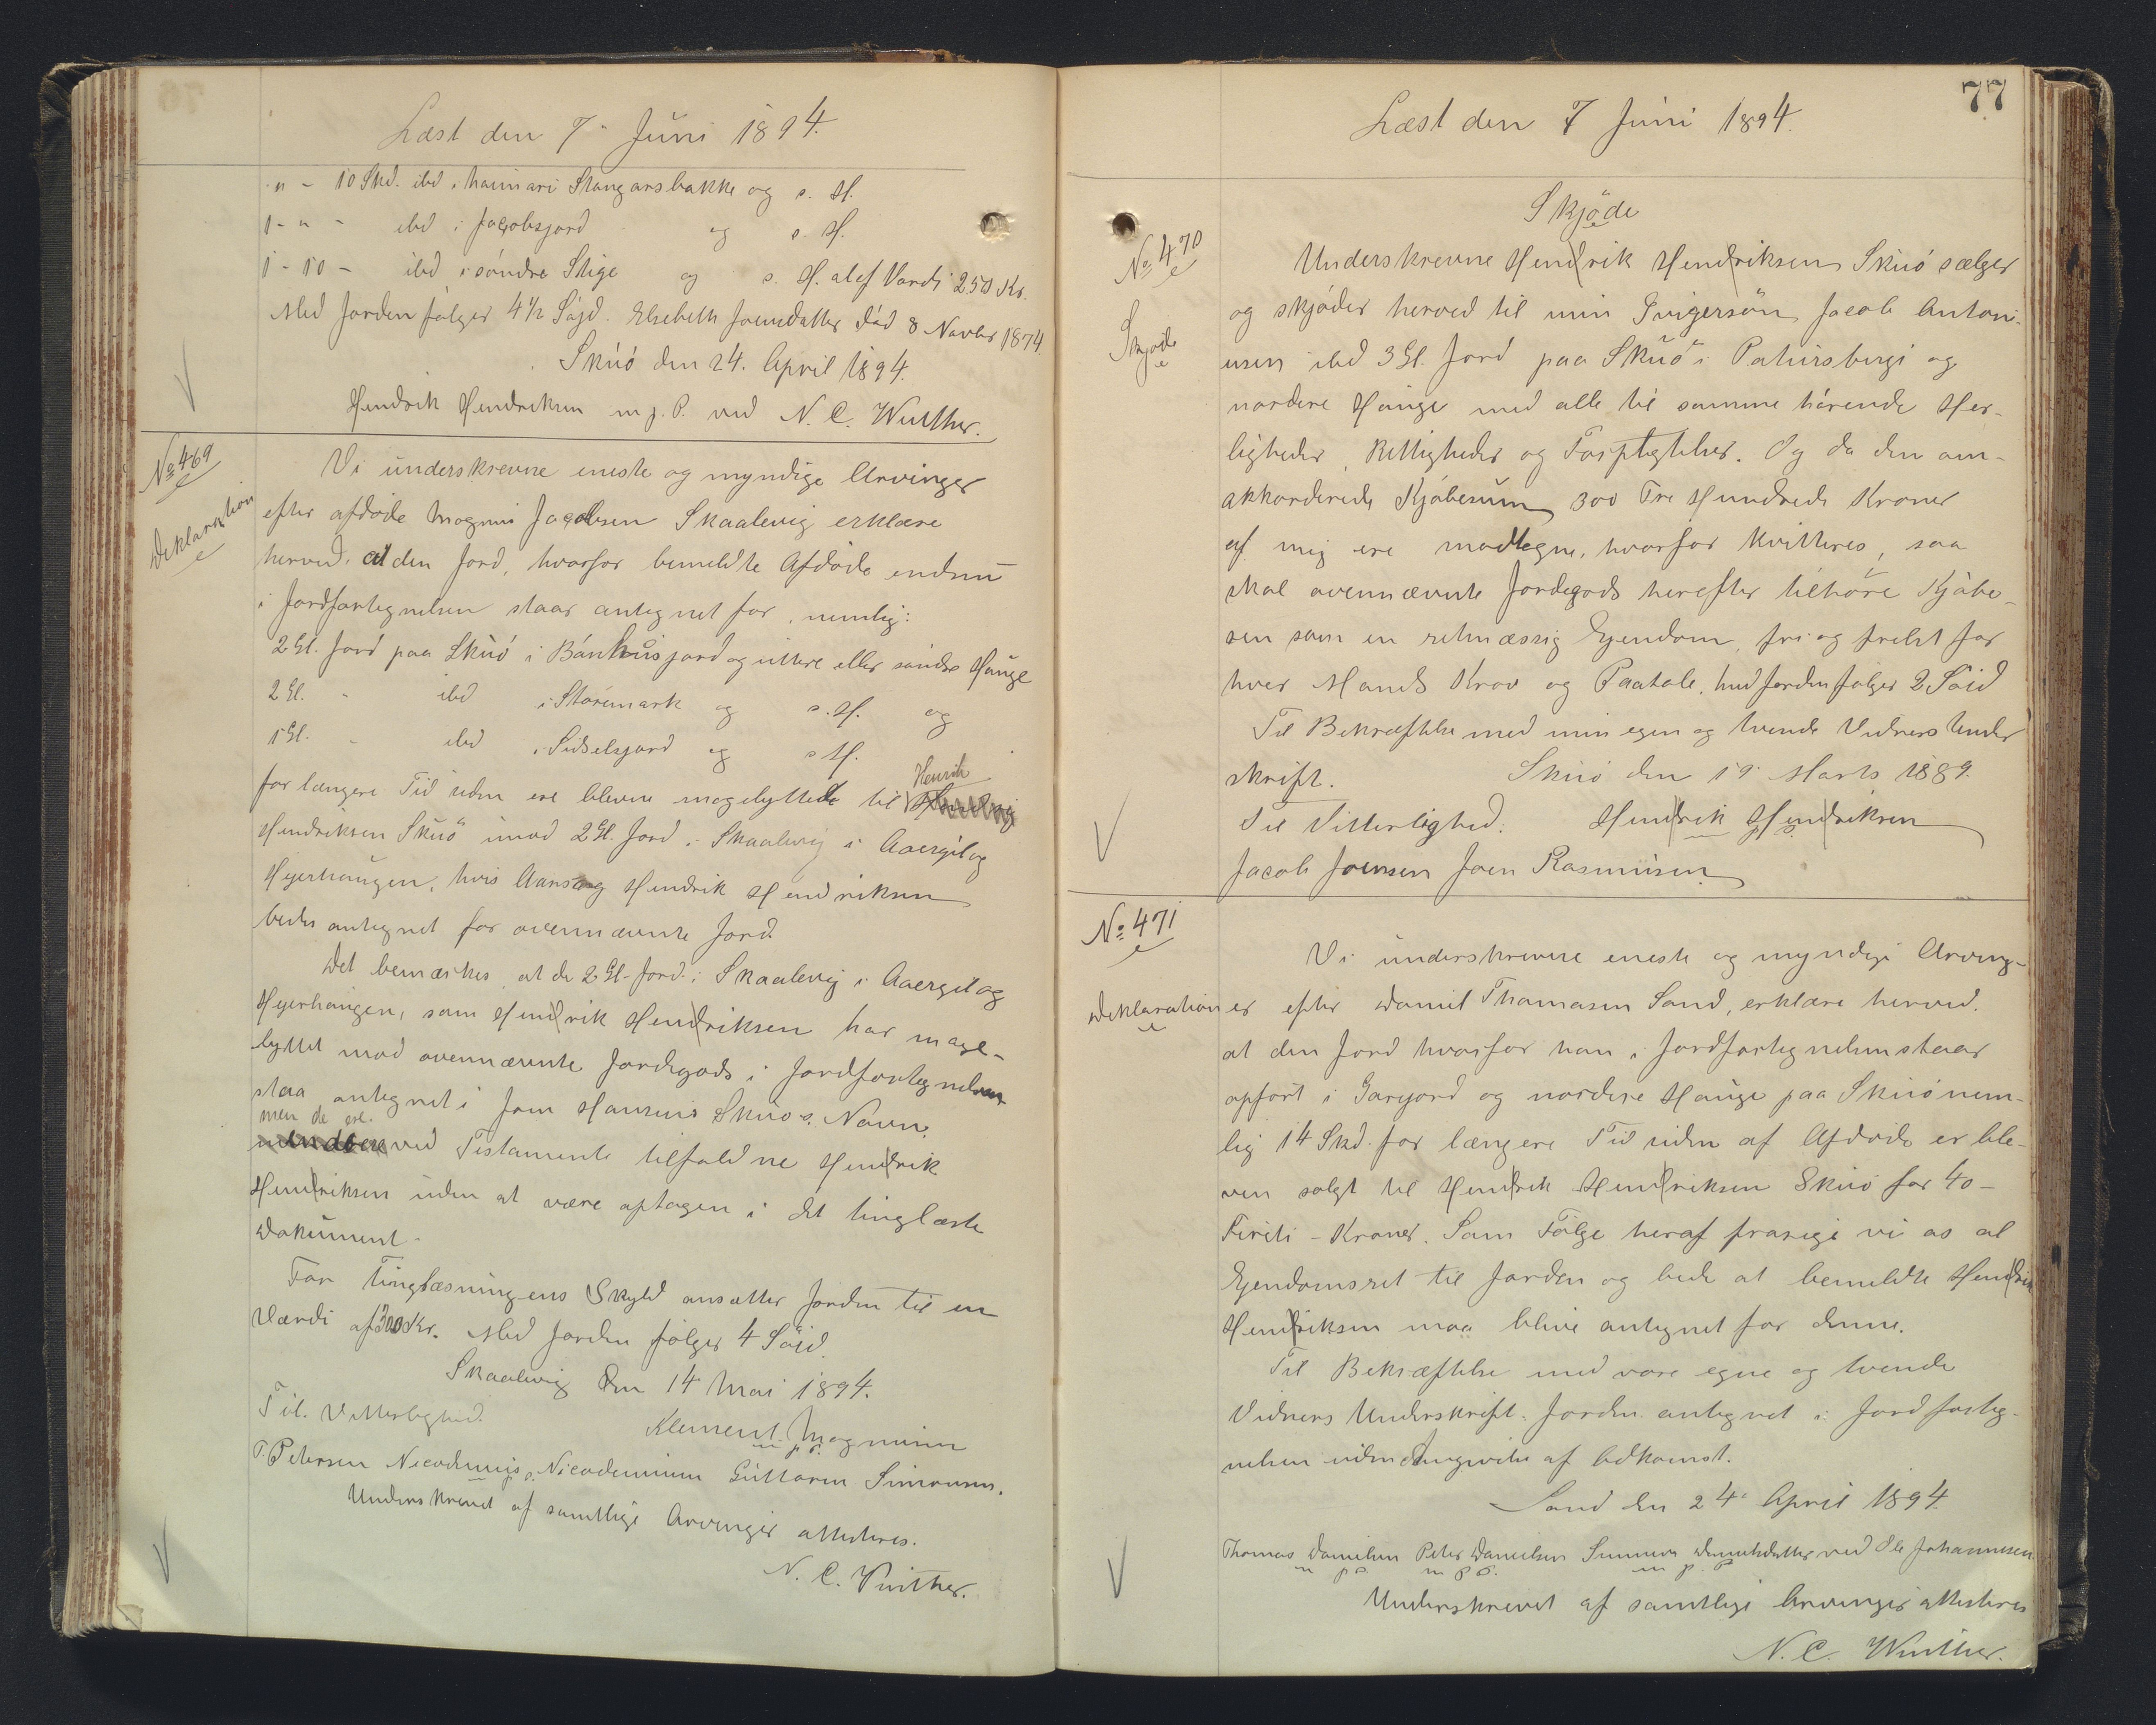 Læst den 7 Juni 1894.
" - 10 Skd. ibd. i hannari Stangarsbakke og s. H.
1 - " - ibd i Jacobsjord og s. H.
1 - 10 - ibd i söndre Stige og s. H. alef Værdi 250 Kr.
Med Jorden følger 4 1/2 Söjd. Elsebeth Joensdatter död 8 Novbr 1874.
Skúó den 24. April 1894.
Hendrik Hendriksen m. p. P. ved N. C. Winther.
No 469
Deklaration
Vi underskrevne eneste og myndige Arvinger
efter afdøde Magnus Jacobsen Skaalevig erklære
herved, at den Jord, hvorfor bemeldte Afdøde endnu
i Jordfortegnelsen staar antegnet for, nemlig:
2 Gl. Jord paa Skúó i Bónhúsjord og uttere eller söndre Hauge
2 Gl. - ibd i Stóremark og s. H. og
1 Gl. - ibd i Sidselsjord og s H.
Henrik
for længere Tid siden ere blevne magebyttede til
Hendriksen Skúó imod 2 Gl. Jord i Skaalevig i Aaergil og
Hyerhaugen, hvis Aarsag Hendrik Hendriksen
bedes antegnet for ovennævnte Jord.
Det bemærkes, at de 2 Gl. Jord i Skaalevig i Aaergil og
Hyerhaugen, som Hendrik Hendriksen har mage-
byttet mod ovennævnte Jordegods i Jordfortegnelsen
staa antegnet i Joen Hansens Skúós Navn,
men de ere
ved Testamente tilfaldne Hendrik
Hendriksen uden at være optagen i det tinglæste
Dokument -
For Tinglæsningens Skyld ansættes Jorden til en
Værdi af 300 Kr. Med Jorden følger 4 Söid.
Skaalevig den 14 Mai 1894.
Til Vitterlighed. Klement Magnusen
m p P.
P. Petersen Nicodemus Nicodemusen Guttorm Simonsen.
Underskrevet af samtlige Arvinger attesteres.
N. C. Winther.
77
Læst den 7 Juni 1894.
Skjöde
No 470
Skjöde
Underskrevne Hendrik Hendriksen Skúó sælger
og skjöder herved til min Svigersön Jacob Antoni-
usen ibd 3 Gl. Jord paa Skúó i Patursbugi og
nordere Hauge med alle til samme hörende Her-
ligheder, Rettigheder og Forpligtelser. Og da den om-
akkorderede Kjöbesum 300 Tre Hundrede Kroner
af mig ere modtagne, hvorfor kvitteres, saa
skal ovennævnte Jordegods herefter tilhöre Kjöbe-
ren som en retmæssig Ejendom, fri og frelst for
hver Mands Krav og Paatale, med Jorden følger 2 Söid
Til Bekræftelse med min egen og tvende Vidners Under
skrift. Skúó den 19 Marts 1889.
Til Vitterlighed: Hendrik Hendriksen
m p P
Jacob Joensen Joen Rasmusen
No 471
Deklaration
Vi underskrevne eneste og myndige Arving-
er efter Daniel Thomasen Sand, erklære herved,
at den Jord hvorfor han i Jordfortegnelsen staar
opfört i Garjord og nordere Hauge paa Skúó nem-
lig 14 Skd. for længere Tid siden af Afdøde er ble-
ven solgt til Hendrik Hendriksen Skúó for 40 -
Firiti - Kroner. Som Fölge heraf frasige vi os al
Ejendomsret til Jorden og bede at bemeldte Hendrik
Hendriksen maa blive antegnet for denne.
Til Bekræftelse med vore egne og tvende
Vidners Underskrift. Jorden antegnet i Jordforteg-
nelsen uden Angivelse af Adkomst.
Sand den 24 April 1894.
Thomas Danielsen Peter Danielsen Sunneva Danielsdatter ved Ole Johannesen
m p P. m p P. m p P
Underskrevet af samtlige Arvinger attesteres
N. C. Winther.